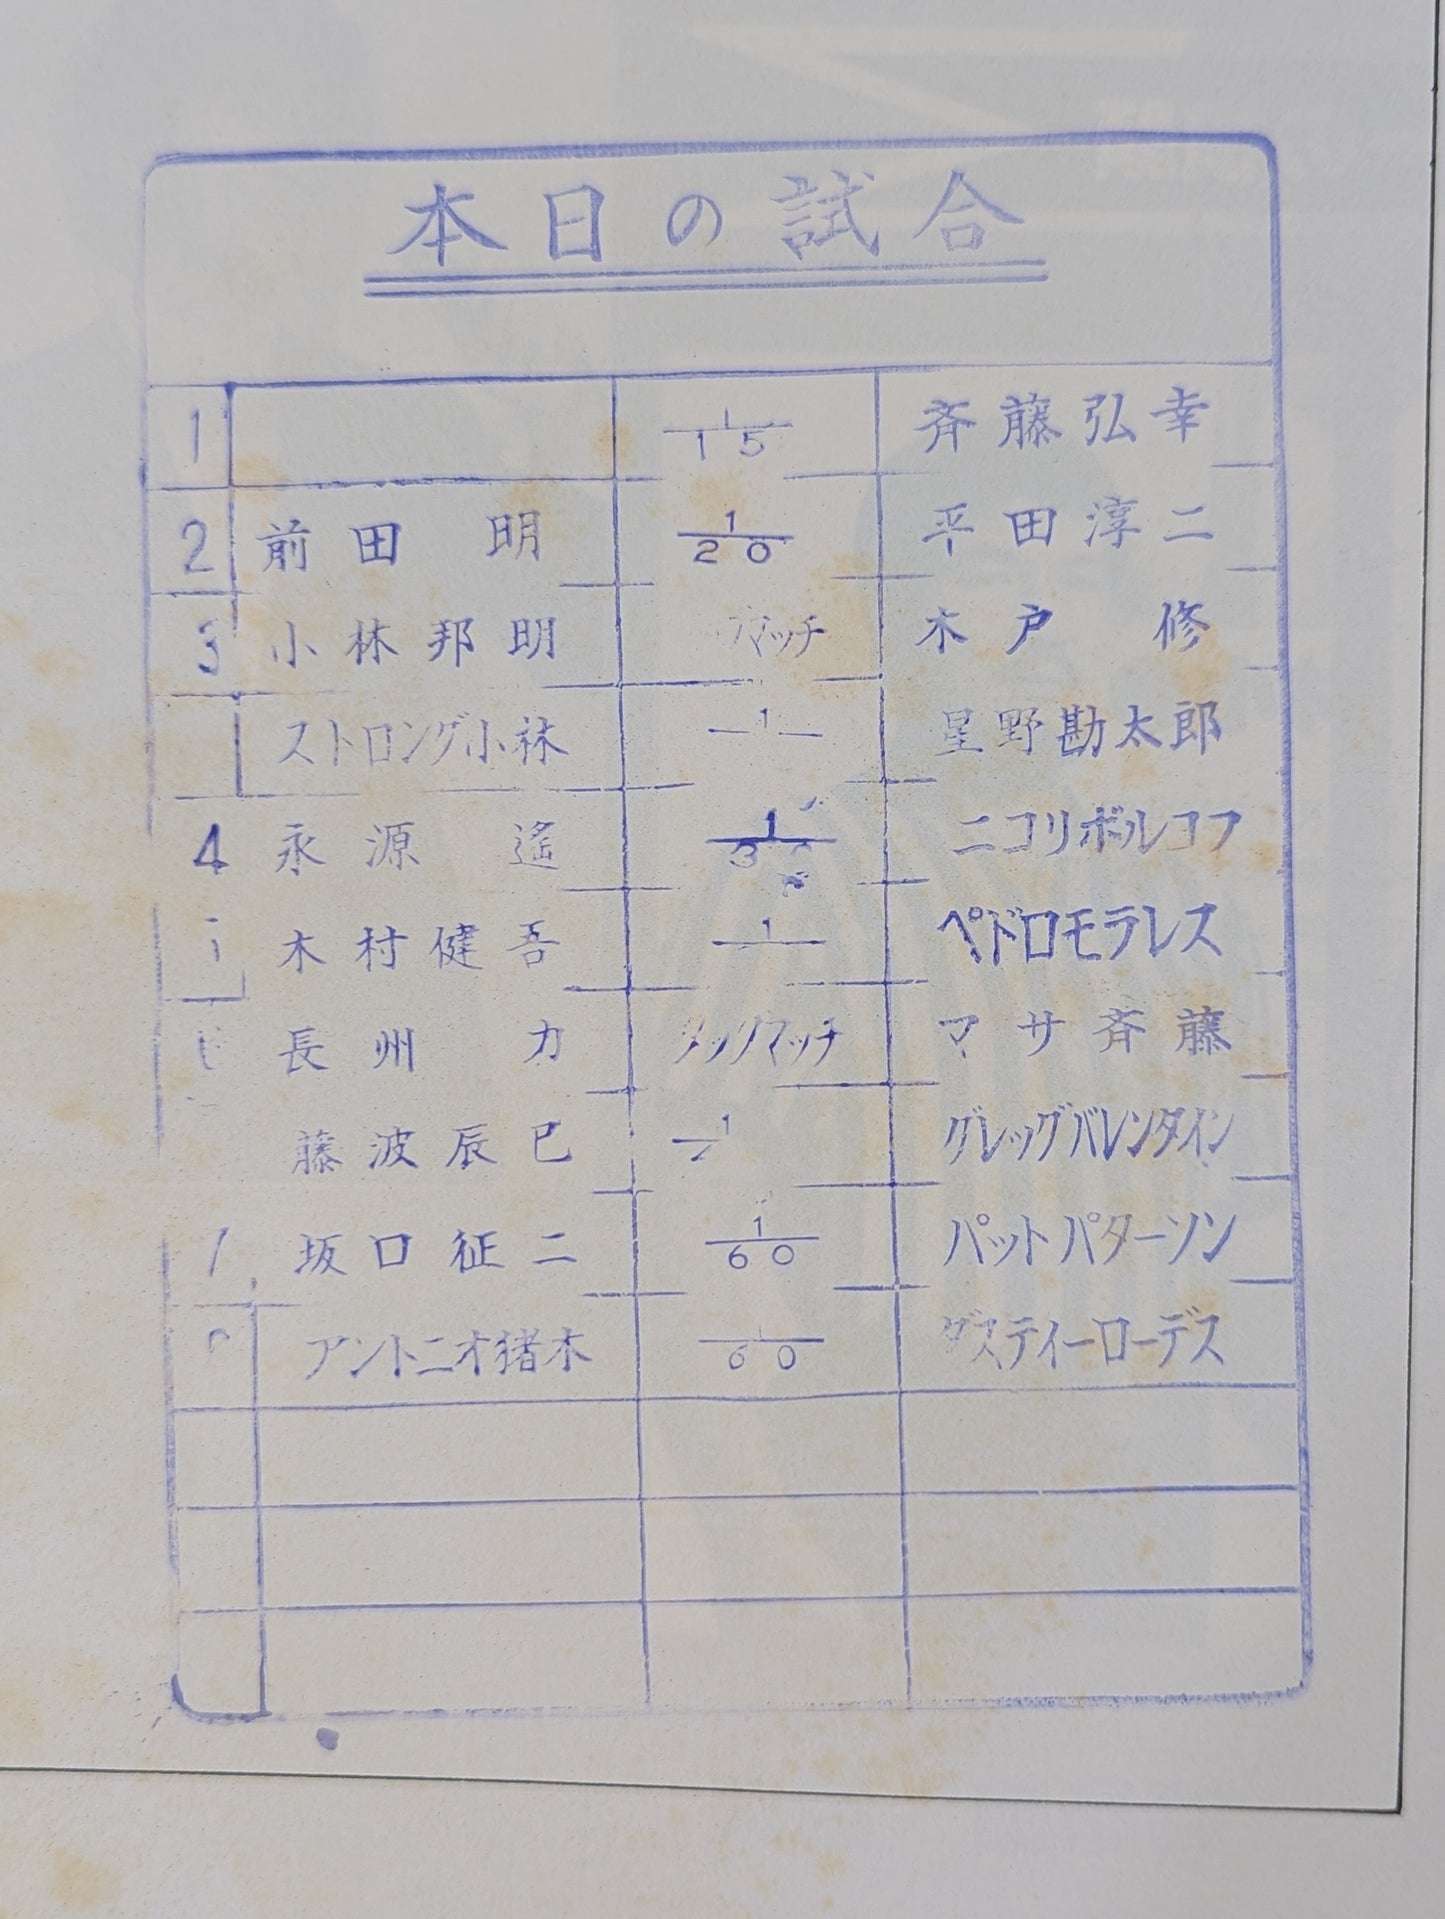 本日の試合
1 1/15 斉藤弘幸
2 前田 明 1/20 平田淳二
3 小林邦明 マッチ 木戸 修
ストロング小林 1 星野勘太郎
4 永源 遙 1/3 ニコリボルコフ
木村健吾 1 ペドロモラレス
長州 力 タッグマッチ マサ斉藤
藤波辰巳 1 グレッグバレンタイン
坂口征二 1/60 パットパターソン
アントニオ猪木 1/60 ダスティーローデス